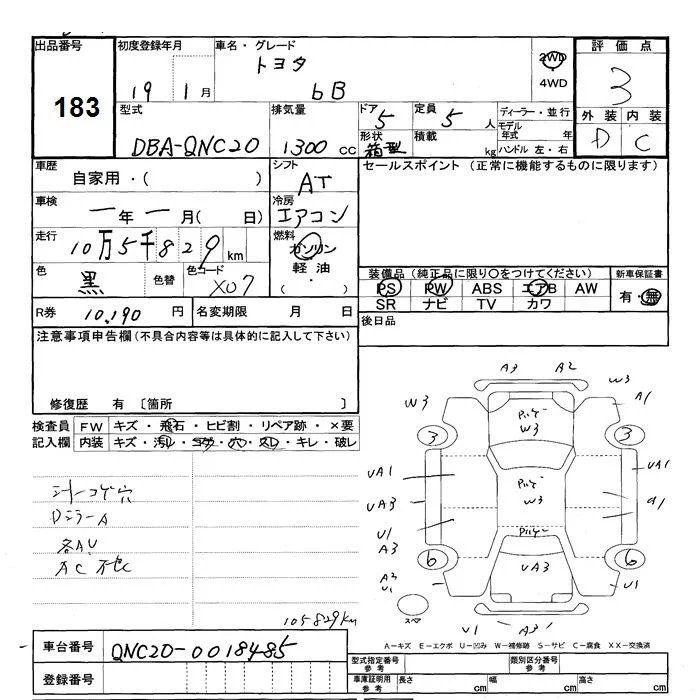 出品番号 初度登録年月 車名・グレード 評価点
183 19 1月 トヨタ bB 2WD・4WD 3
型式 排気量 ドア 定員 ディーラー・並行 外装 内装
DBA-QNC20 1300 cc 5 5人 モデル年式 年 D C
形状 箱型 積載 kg ハンドル 左・右
車歴 シフト セールスポイント (正常に機能するものに限ります)
自家用・( ) AT
車検 冷房
一年一月( 日) エアコン
走行 燃料
10万5千829km ガソリン
色 色替 色コード 軽油
黒 X07 ( ・ )
装備品 (純正品に限り〇をつけてください) 新車保証書
PS PW ABS エアB AW 有・無
SR ナビ TV カワ
R券 10,190円 名変期限 月 日 後日品
注意事項申告欄 (不具合内容等は具体的に記入して下さい)
修復歴 有 〔箇所 〕
検査員 FW キズ・飛石・ヒビ割・リペア跡・×要
記入欄 内装 キズ・汚レ・コゲ・穴・スレ・キレ・破レ
シートコゲ穴
DミラーA
各AU
105829km
A3 A2
W3 W3 A1
3 W3 3
UA1 UA1
UA3 W3 A1
U1
A3
6 6
UA3
A2 U1
U1
スペア
U1 A31
A=キズ E=エクボ U=凹み W=補修跡 S=サビ C=腐食 XX=交換済
車台番号 QNC20-0018485
型式指定番号 参考 類別区分番号 参考
登録番号
車庫証明用 参考 長さ cm 幅 cm 高さ cm